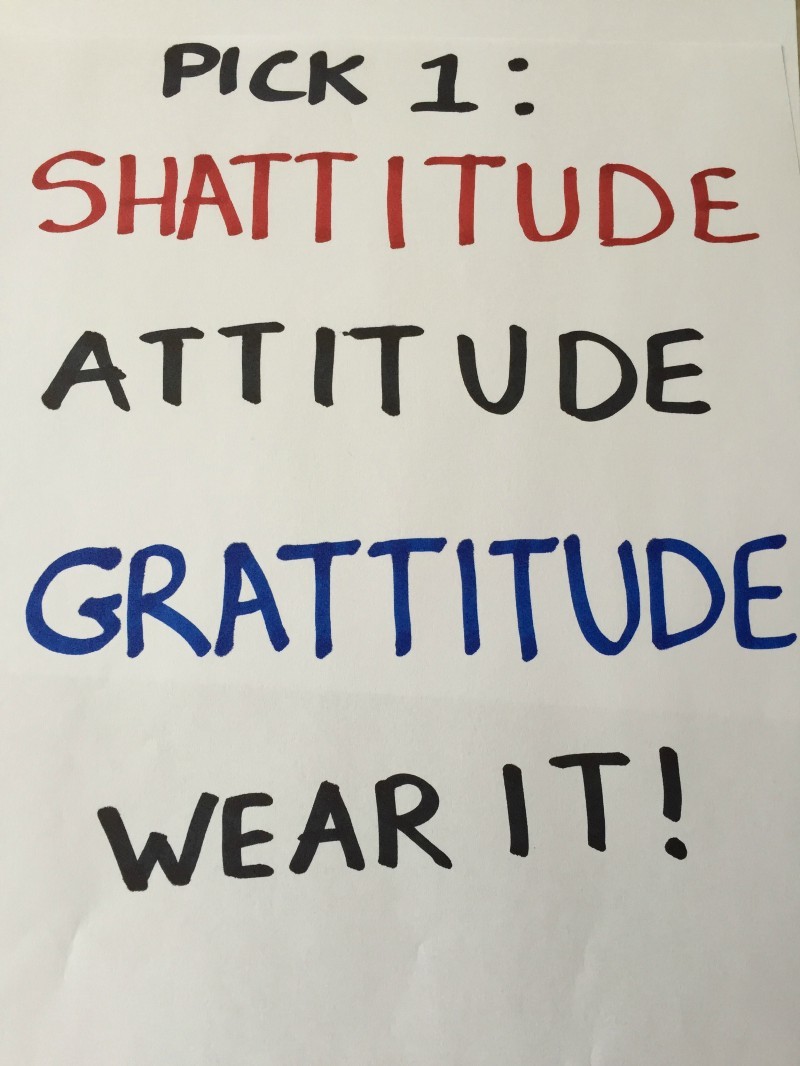 PICK 1:
SHATTITUDE
ATTITUDE
GRATTITUDE
WEAR IT!